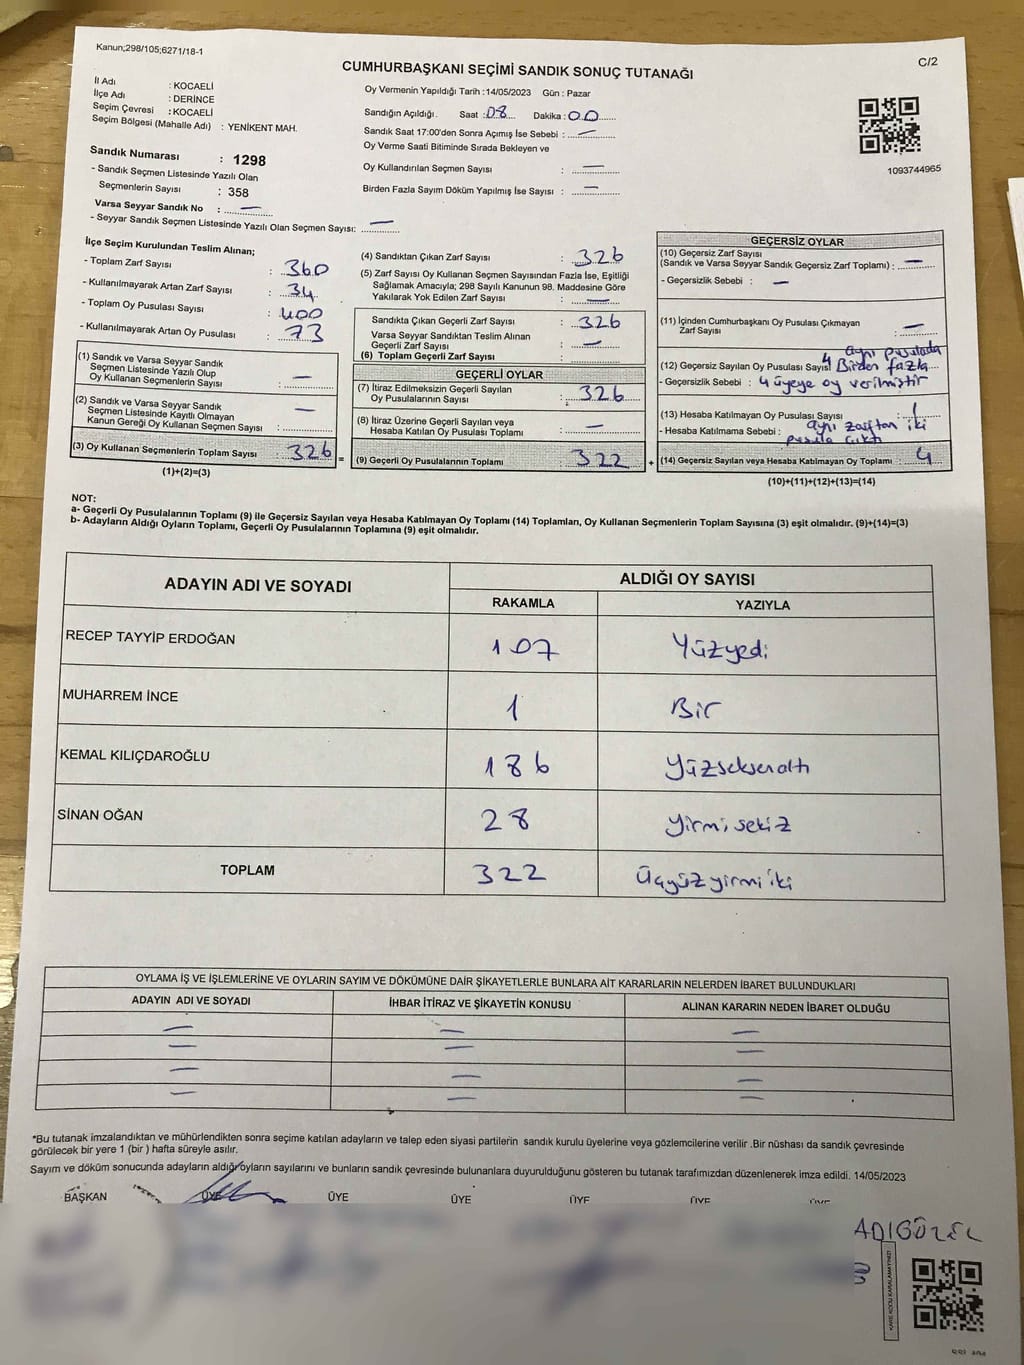 Kanun;298/105;6271/18-1
C/2
CUMHURBAŞKANI SEÇİMİ SANDIK SONUÇ TUTANAĞI
İl Adı : KOCAELİ
İlçe Adı : DERİNCE
Seçim Çevresi : KOCAELİ
Seçim Bölgesi (Mahalle Adı) : YENİKENT MAH.
Oy Vermenin Yapıldığı Tarih :14/05/2023 Gün : Pazar
Sandığın Açıldığı. Saat :08 Dakika :00
Sandık Saat 17:00'den Sonra Açımış İse Sebebi : —
Oy Verme Saati Bitiminde Sırada Bekleyen ve
Oy Kullandırılan Seçmen Sayısı : —
Birden Fazla Sayım Döküm Yapılmış İse Sayısı : —
1093744965
Sandık Numarası : 1298
- Sandık Seçmen Listesinde Yazılı Olan
Seçmenlerin Sayısı : 358
Varsa Seyyar Sandık No : —
- Seyyar Sandık Seçmen Listesinde Yazılı Olan Seçmen Sayısı: —
İlçe Seçim Kurulundan Teslim Alınan;
- Toplam Zarf Sayısı : 360
- Kullanılmayarak Artan Zarf Sayısı : 34
- Toplam Oy Pusulası Sayısı : 400
- Kullanılmayarak Artan Oy Pusulası : 73
(1) Sandık ve Varsa Seyyar Sandık
Seçmen Listesinde Yazılı Olup
Oy Kullanan Seçmenlerin Sayısı : —
(2) Sandık ve Varsa Seyyar Sandık
Seçmen Listesinde Kayıtlı Olmayan
Kanun Gereği Oy Kullanan Seçmen Sayısı : —
(3) Oy Kullanan Seçmenlerin Toplam Sayısı : 326 =
(1)+(2)=(3)
(4) Sandıktan Çıkan Zarf Sayısı : 326
(5) Zarf Sayısı Oy Kullanan Seçmen Sayısından Fazla İse, Eşitliği
Sağlamak Amacıyla; 298 Sayılı Kanunun 98. Maddesine Göre
Yakılarak Yok Edilen Zarf Sayısı : —
Sandıkta Çıkan Geçerli Zarf Sayısı : 326
Varsa Seyyar Sandıktan Teslim Alınan
Geçerli Zarf Sayısı : —
(6) Toplam Geçerli Zarf Sayısı :
GEÇERLİ OYLAR
(7) İtiraz Edilmeksizin Geçerli Sayılan
Oy Pusulalarının Sayısı : 326
(8) İtiraz Üzerine Geçerli Sayılan veya
Hesaba Katılan Oy Pusulası Toplamı : —
(9) Geçerli Oy Pusulalarının Toplamı : 322 +
GEÇERSİZ OYLAR
(10) Geçersiz Zarf Sayısı
(Sandık ve Varsa Seyyar Sandık Geçersiz Zarf Toplamı) : —
- Geçersizlik Sebebi : —
(11) İçinden Cumhurbaşkanı Oy Pusulası Çıkmayan
Zarf Sayısı : —
aynı pusulada
(12) Geçersiz Sayılan Oy Pusulası Sayısı 4 Birden fazla
- Geçersizlik Sebebi : 4 üyeye oy verilmiştir
(13) Hesaba Katılmayan Oy Pusulası Sayısı : 1
- Hesaba Katılmama Sebebi : aynı zarftan iki
pusula çıktı
(14) Geçersiz Sayılan veya Hesaba Katılmayan Oy Toplamı : 4
(10)+(11)+(12)+(13)=(14)
NOT:
a- Geçerli Oy Pusulalarının Toplamı (9) ile Geçersiz Sayılan veya Hesaba Katılmayan Oy Toplamı (14) Toplamları, Oy Kullanan Seçmenlerin Toplam Sayısına (3) eşit olmalıdır. (9)+(14)=(3)
b- Adayların Aldığı Oyların Toplamı, Geçerli Oy Pusulalarının Toplamına (9) eşit olmalıdır.
ADAYIN ADI VE SOYADI
ALDIĞI OY SAYISI
RAKAMLA YAZIYLA
RECEP TAYYİP ERDOĞAN 107 Yüzyedi
MUHARREM İNCE 1 Bir
KEMAL KILIÇDAROĞLU 186 Yüzseksenaltı
SİNAN OĞAN 28 Yirmisekiz
TOPLAM 322 Üçyüzyirmiiki
OYLAMA İŞ VE İŞLEMLERİNE VE OYLARIN SAYIM VE DÖKÜMÜNE DAİR ŞİKAYETLERLE BUNLARA AİT KARARLARIN NELERDEN İBARET BULUNDUKLARI
ADAYIN ADI VE SOYADI İHBAR İTİRAZ VE ŞİKAYETİN KONUSU ALINAN KARARIN NEDEN İBARET OLDUĞU
— — —
— — —
— — —
— — —
*Bu tutanak imzalandıktan ve mühürlendikten sonra seçime katılan adayların ve talep eden siyasi partilerin sandık kurulu üyelerine veya gözlemcilerine verilir .Bir nüshası da sandık çevresinde
görülecek bir yere 1 (bir ) hafta süreyle asılır.
Sayım ve döküm sonucunda adayların aldığı oyların sayılarını ve bunların sandık çevresinde bulunanlara duyurulduğunu gösteren bu tutanak tarafımızdan düzenlenerek imza edildi. 14/05/2023
BAŞKAN ÜYE ÜYE ÜYE ÜYE ÜYE ÜYE
ADIGÜZEL
KARE KODU KARALAMAYINIZ!